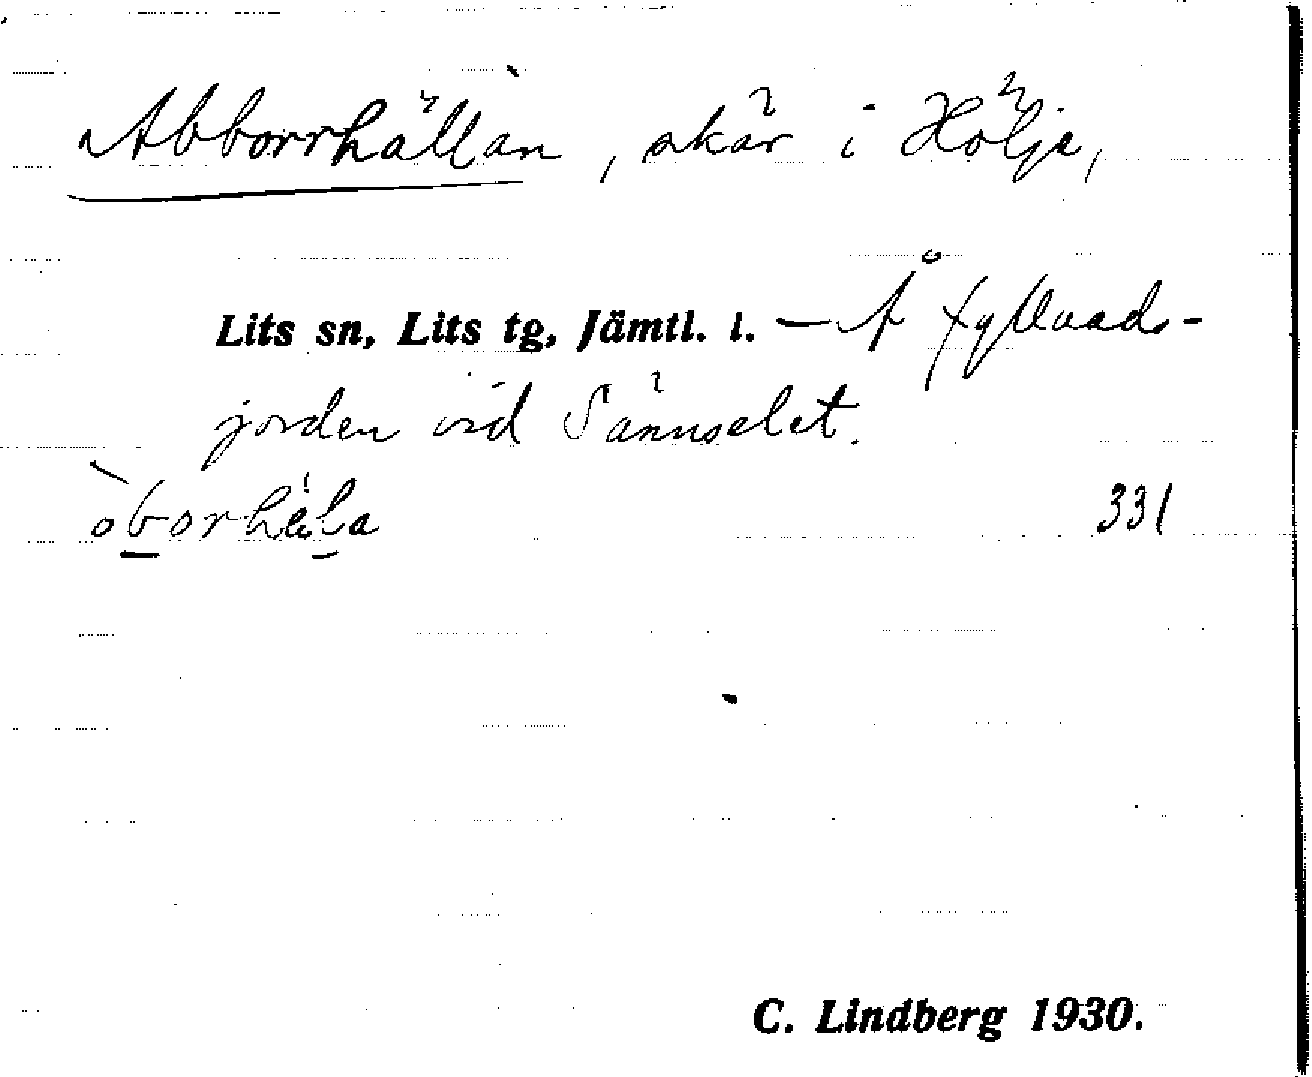 Abborrhällan, skär i Hölje,
Lits sn, Lits tg, Jämtl. l. — Å fyllnads-
jorden vid Sännselet.
331
C. Lindberg 1930.